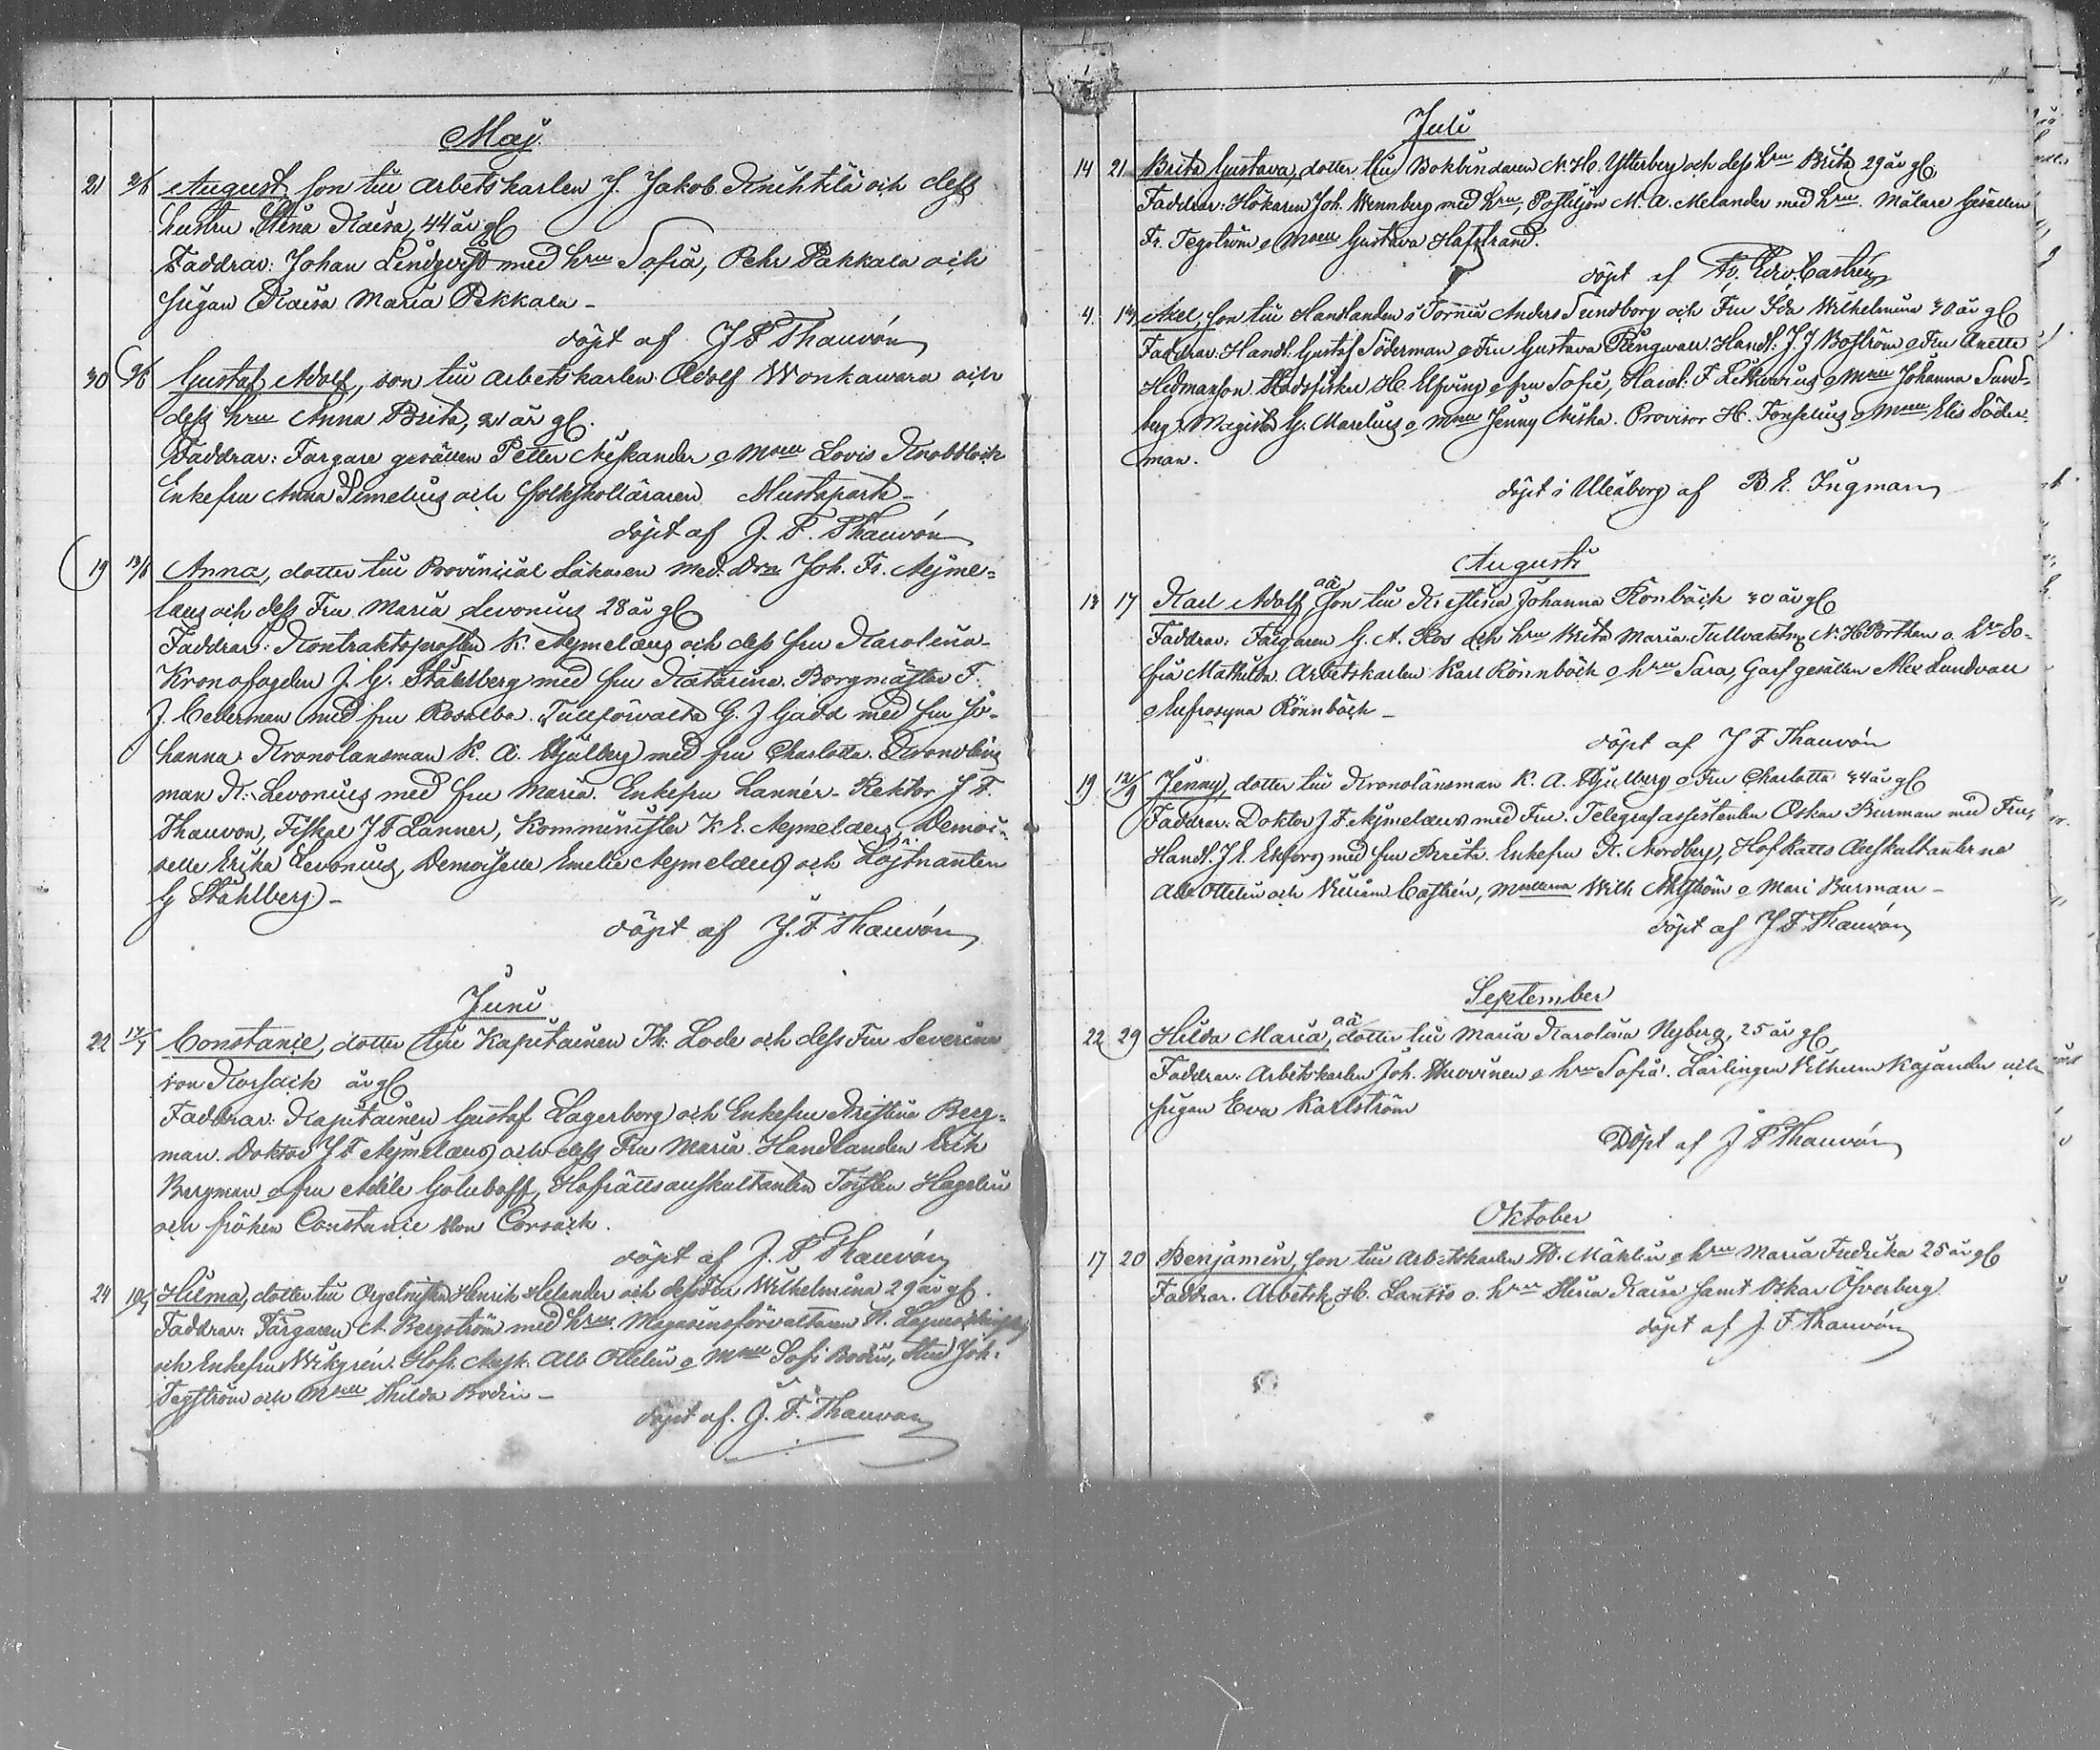 Maj
21 2/6 August, son till arbetskarlen J. Jakob Knihtilä och dess
hustru Stina Kaisa, 44 år gl
Faddrar: Johan Lindqvist med hru Sofia, Pehr Pakkala och
pigan Kaisa Maria Pekkala –
döpt af J F Thauvón
30 2/6 Gustaf Adolf, son till arbetskarlen Adolf Wonkawara och
dess hru Anna Brita, 21 år gl.
Faddrar: Färgare gesällen Petter Meskander o Msell Lovis Knobbloch
Enkefru Anna Simelius och folkskolläraren Mustaparta –
döpt af J. F. Thauvón
19 13/6 Anna, dotter till Provincial Läkaren Med. Drn Joh. Fr. Aejme-
laeus och dess Fru Maria Levonius 28 år gl
Faddrar: Kontraktsprosten K. Aejmelaeus och dess fru Karolina
Kronofogden J. G. Ståhlberg med fru Katarina. Borgmästar F.
J. Cederman med fru Rosalba. Tullförvalta G. J Gadd med fru Jo-
hanna. Kronolänsman K. A. Hjulberg med fru Charlotta. Kronoläns
man K. Levonius med fru Maria. Enkefru Lannér. Rektor J F.
Thauvon, Fiskal J F Lanner, Komminister K E. Aejmelaeus, Demoi-
selle Erika Levonius, Demoiselle Emelie Aejmelaeus och Löjtnanten
G Ståhlberg –
döpt af J. F Thauvón
Juni
22 17/7 Constanie, dotter till Kapitainen Th: Lode och dess Fru Severina
von Korsaik år gl
Faddrar: Kapitainen Gustaf Lagerborg och Enkefru Kristina Berg-
man. Doktor J F Aejmelaeus och dess Fru Maria. Handlanden Erik
Bergman o fru Adéle Goluboff, Hofrättsauskultanten Torsten Hagelin
och fröken Constanie Von Corsack.
döpt af J. F Thauvón
24 10/7 Hilma, dotter till Orgelnisten Henrik Helander och dess Fru Wilhelmina 29 år gl.
Faddrar: Färgaren A. Bergström med hru. Magasinsförvaltaren
och Enkefru Wikgrén. Hofr. Ausk. Alb Ottelin o Msell Sofi Bodin, Stud Joh.
Tegström och Msell Hilda Bodin –
döpt af. J. F. Thauvon
Juli
14 21 Brita Gustava, dotter till Bokbindaren N. H. Ytterberg och dess hru Brita 29 år gl,
Faddrar: Hökaren Joh. Wennberg med hru, Postiljon M. A. Melander med hru. Målare Gesällen
Fr. Tegström o Msell Gustava Hafstrand.
döpt af Fr. Edv. Castrén
4. Axel, son till Handlanden i Torneå Anders Sundborg och Fru Ida Wilhelmina 30 år gl
Faddrar: Handl: Gustaf Söderman o Fru Gustava Rengwall. Handl: J. J Boström o Fru Anette
Hedmanson. Stadsfiskal H. Elfving o fru Sofie, Handl: F o Msell Johanna Sund-
berg. Magister G. Marelius o Msell Jenny Miska. Provisor H. Fonselius o Msell Elis Söder-
man.
döpt i Uleåborg af B. E. Ingman
Augusti
13 17 Karl Adolf oä son till Kristina Johanna Rönbäck 30 år gl
Faddrar: Färgaren G. A. Ros och hru Brita Maria. Tullvaktm N. H Bothen o. hru So-
fia Mathilda. Arbetskarlen Karl Rönnbäck o hru Sara, Garf gesällen Alex Lundvall
o Eufrosyna Rönnbäck –
döpt af J F Thauvón
19 12/9 Jenny, dotter till Kronolänsman K. A. Hjulberg o Fru Charlotta 34 år gl
Faddrar: Doktor J F Aejmelaeus med Fru. Telegrafassistenten Oskar Burman med Fru,
Handl. J E Ekfors med fru Brita. Enkefru K. Nordberg, HofRätts Auskultanterne
Alb Ottelin och William Castrén, Msellerna Wilh Ahlström o Mari Burman –
döpt af J F Thauvón
September
22 29 Hilda Maria, oä dotter till Maria Karolina Nyberg, 25 år gl
Faddrar: Arbetskarlen Joh. Huovinen o hru Sofia. Lärlingen Vilhelm Kajander och
pigan Eva Karlström
Döpt af J F Thauvón
Oktober
17 20 Benjamin, son till Arbetskarlen Mäklin o hru Maria Fredrika 25 år gl
Faddrar. Arbetsk H. Lantto o. hru Stina Kaisa samt Oskar Öfverberg.
döpt af J. F. Thauvón